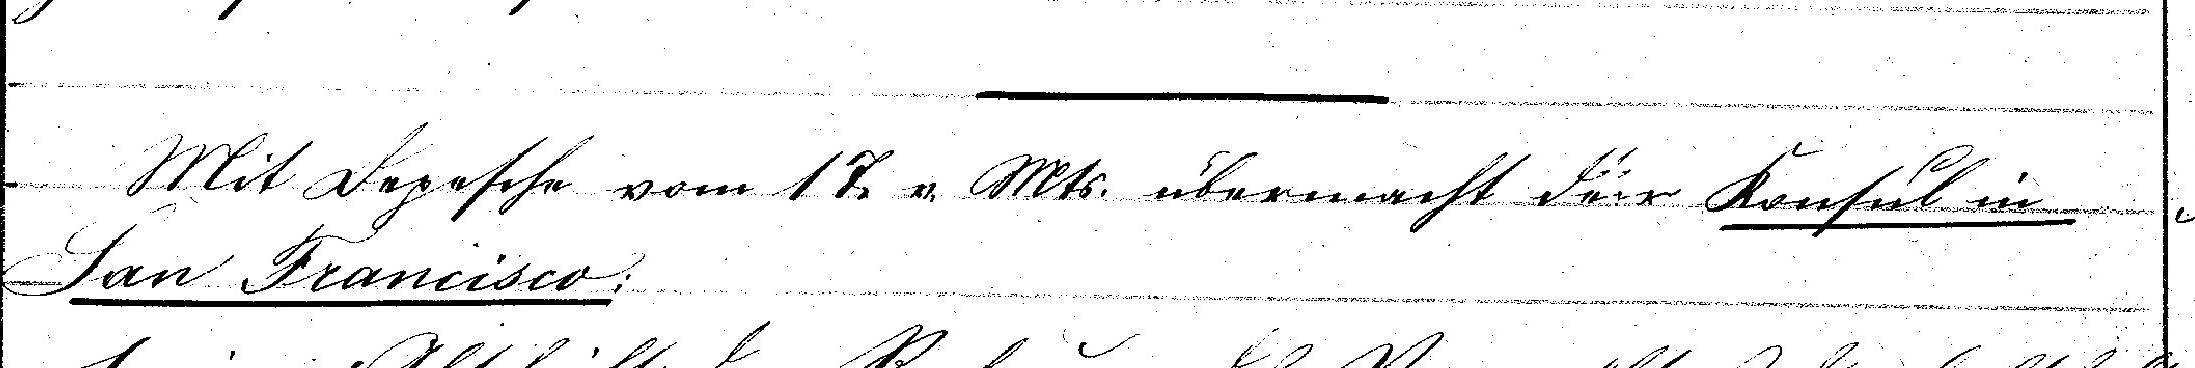 Mit Depesche vom 17. v. Mts. übermacht der Konsul in
San Francisco: